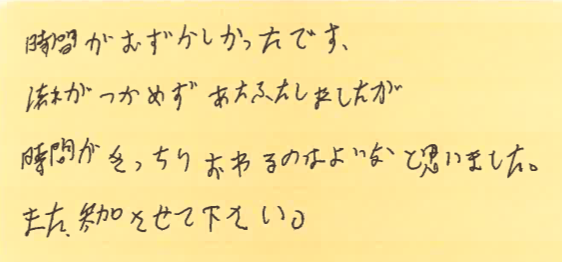 時間がむずかしかったです、
流れがつかめず あたふたしましたが
時間がきっちりおわるのはよいなと思いました。
また、参加させて下さい。